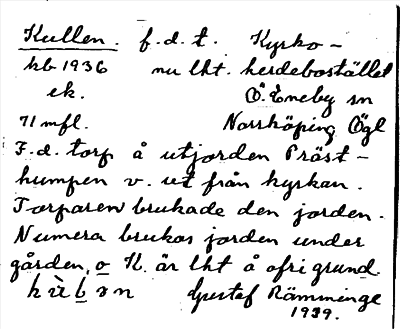 Kullen. f.d.t. Kyrko-
kb 1936 nu lht. herdebostället
ek. Ö. Eneby sn
71 mfl. Norrköping Ögl
F.d. torp å utjorden Präst-
humpen v. ut från kyrkan.
Torparen brukade den jorden.
Numera brukas jorden under
gården, o K. är lht å ofri grund.
Gustaf Rämminge
1929.